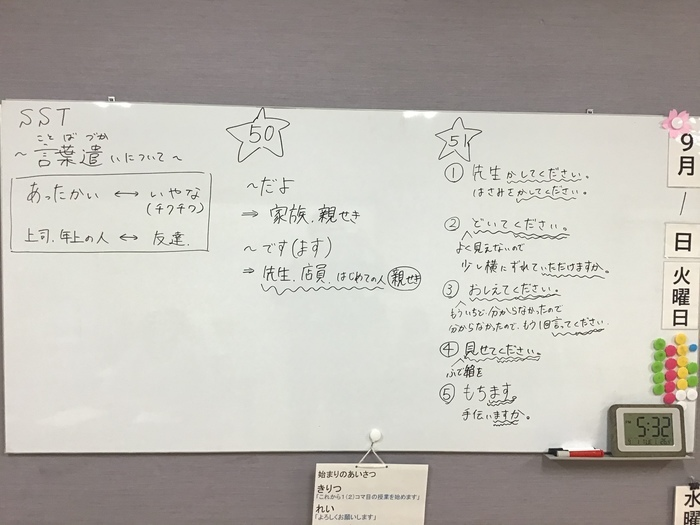 SST
ことば づか
～言葉遣いについて～
あったかい ↔ いやな
(チクチク)
上司、年上の人 ↔ 友達、
50
～だよ
⇒ 家族、親せき
～です(ます)
⇒ 先生、店員、はじめての人 親せき
51
① 先生かしてください。
はさみをかしてください。
② どいてください。
よく見えないので
少し横にずれていただけますか。
③ おしえてください。
もういちど、分からなかったので
分からなかったので、もう1回言ってください
④ 見せてください。
ふで箱を
⑤ もちます。
手伝いますか。
9月
/
日
火曜日
5:32
始まりのあいさつ
きりつ
「これから1(2)コマ目の授業を始めます」
れい
「よろしくお願いします」
水曜